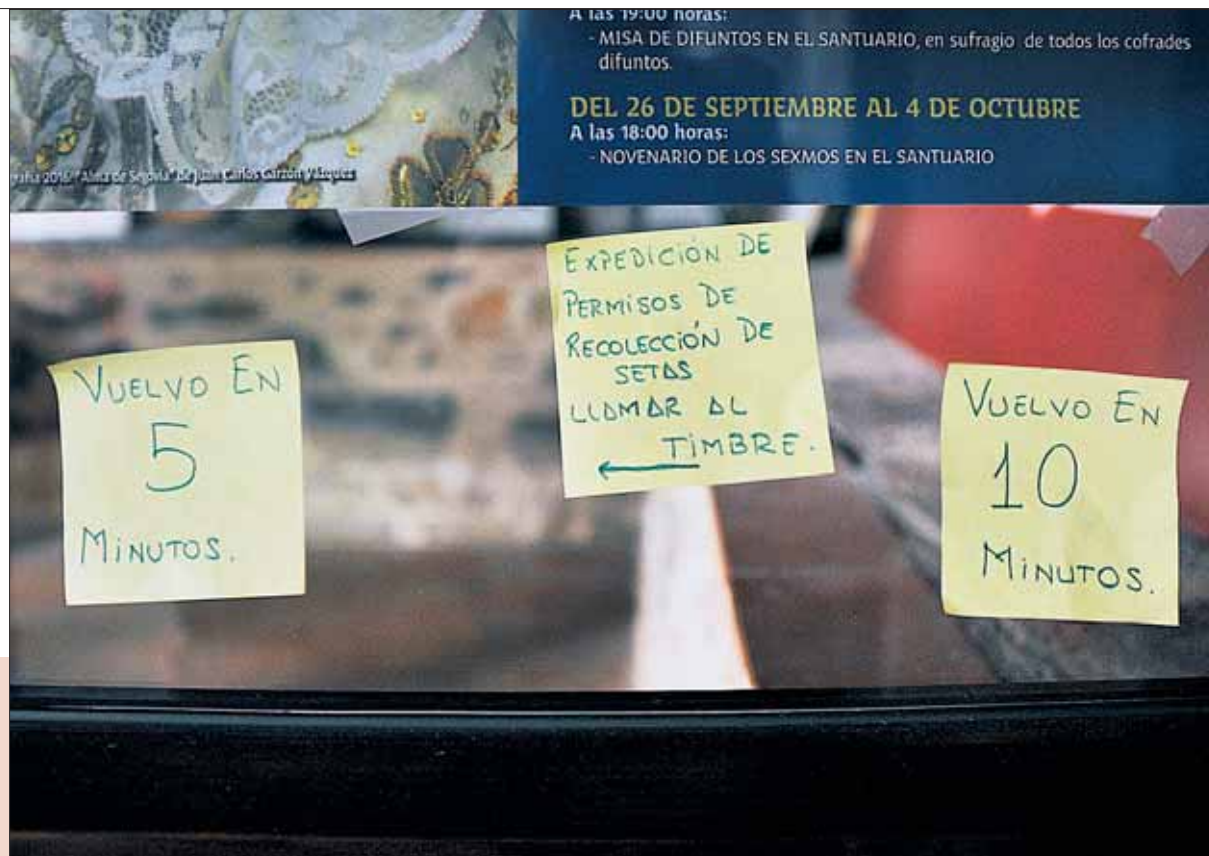 A las 19:00 horas:
- MISA DE DIFUNTOS EN EL SANTUARIO, en sufragio de todos los cofrades
difuntos.
DEL 26 DE SEPTIEMBRE AL 4 DE OCTUBRE
A las 18:00 horas:
- NOVENARIO DE LOS SEXMOS EN EL SANTUARIO
2016: "Alma de Segovia" de Juan Carlos Garzón Vázquez
VUELVO EN
5
MINUTOS.
EXPEDICIÓN DE
PERMISOS DE
RECOLECCIÓN DE
SETAS
LLAMAR AL
TIMBRE.
VUELVO EN
10
MINUTOS.